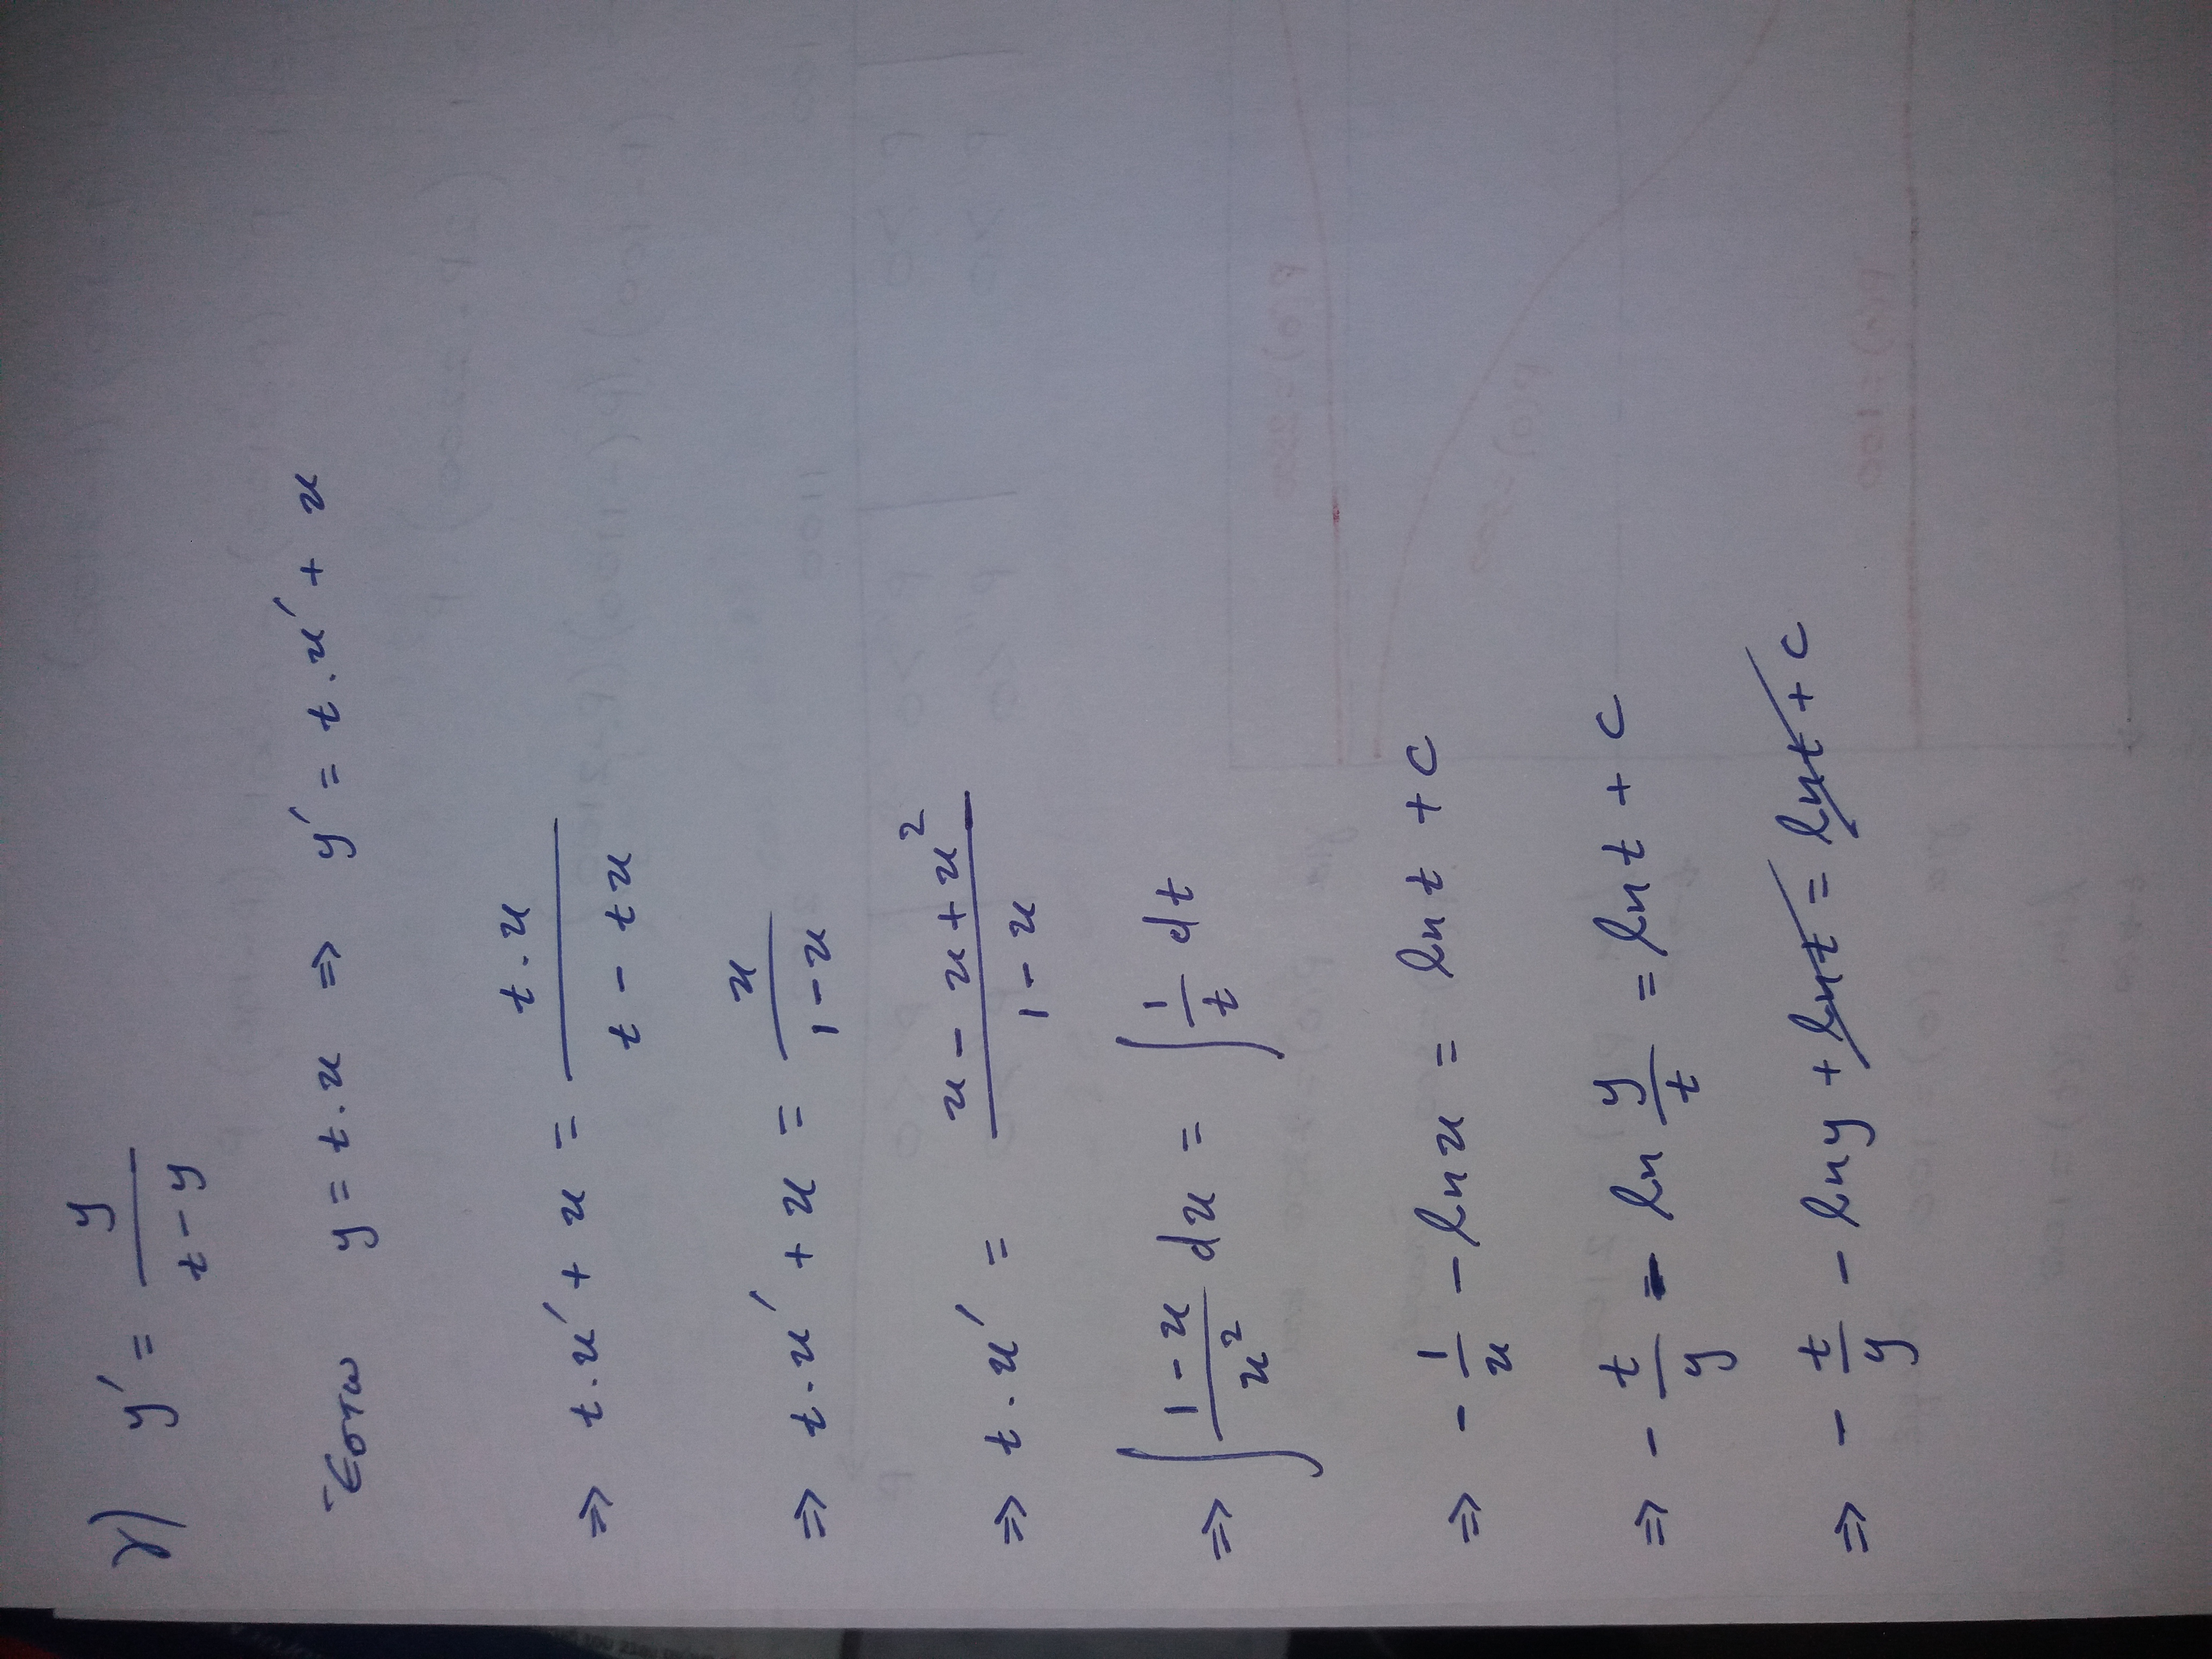 γ) y' = y/(t-y)
Έστω y = t.u ⇒ y' = t.u' + u
⇒ t.u' + u = t.u/(t - tu)
⇒ t.u' + u = u/(1-u)
⇒ t.u' = (u - u + u²)/(1 - u)
⇒ ∫ (1-u)/u² du = ∫ 1/t dt
⇒ - 1/u - ln u = ln t + c
⇒ - t/y - ln y/t = ln t + c
⇒ - t/y - ln y + ln t = ln t + c